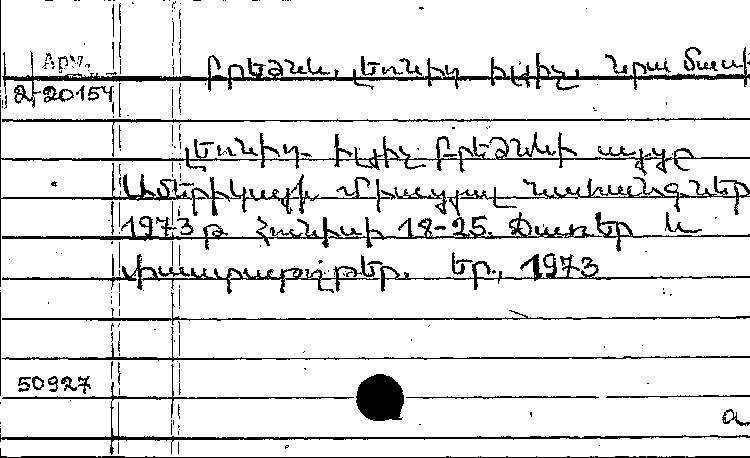 Արվ.
Բրեժնև, Լեոնիդ Իլյիչ, նրա մասի
2-20154
Լեոնիդ Իլյիչ Բրեժնևի այցը
Ամերիկայի Միացյալ Նահանգներ
1973 թ. հունիսի 18-25. Ճառեր և
փաստաթղթեր. Եր., 1973
50927
a